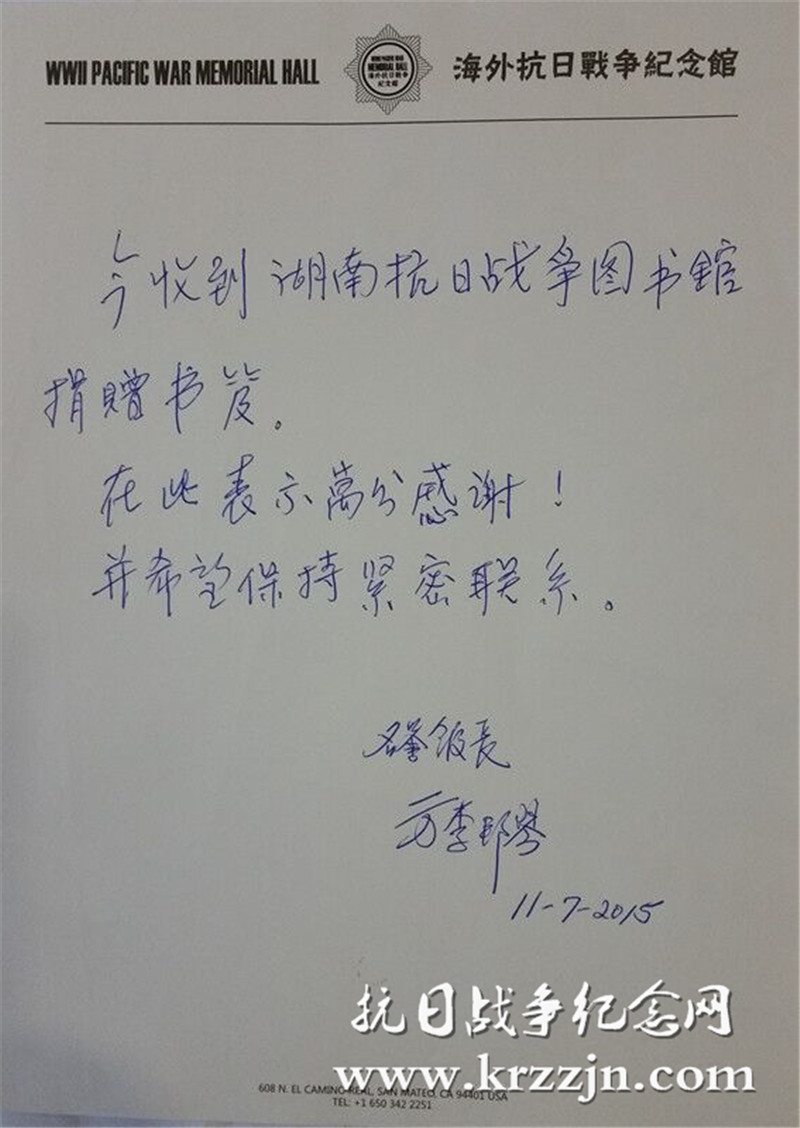 WWII PACIFIC WAR MEMORIAL HALL
WWII PACIFIC WAR
MEMORIAL HALL
海外抗日戰争
紀念館
海外抗日戰争紀念館
今收到湖南抗日战争图书舘
捐贈书笈。
在此表示萬分感谢！
并希望保持紧密联系。
名誉馆長
方李邦琴
11-7-2015
抗日战争纪念网
www.krzzjn.com
608 N. EL CAMINO REAL, SAN MATEO, CA 94401 USA
TEL: +1 650 342 2251